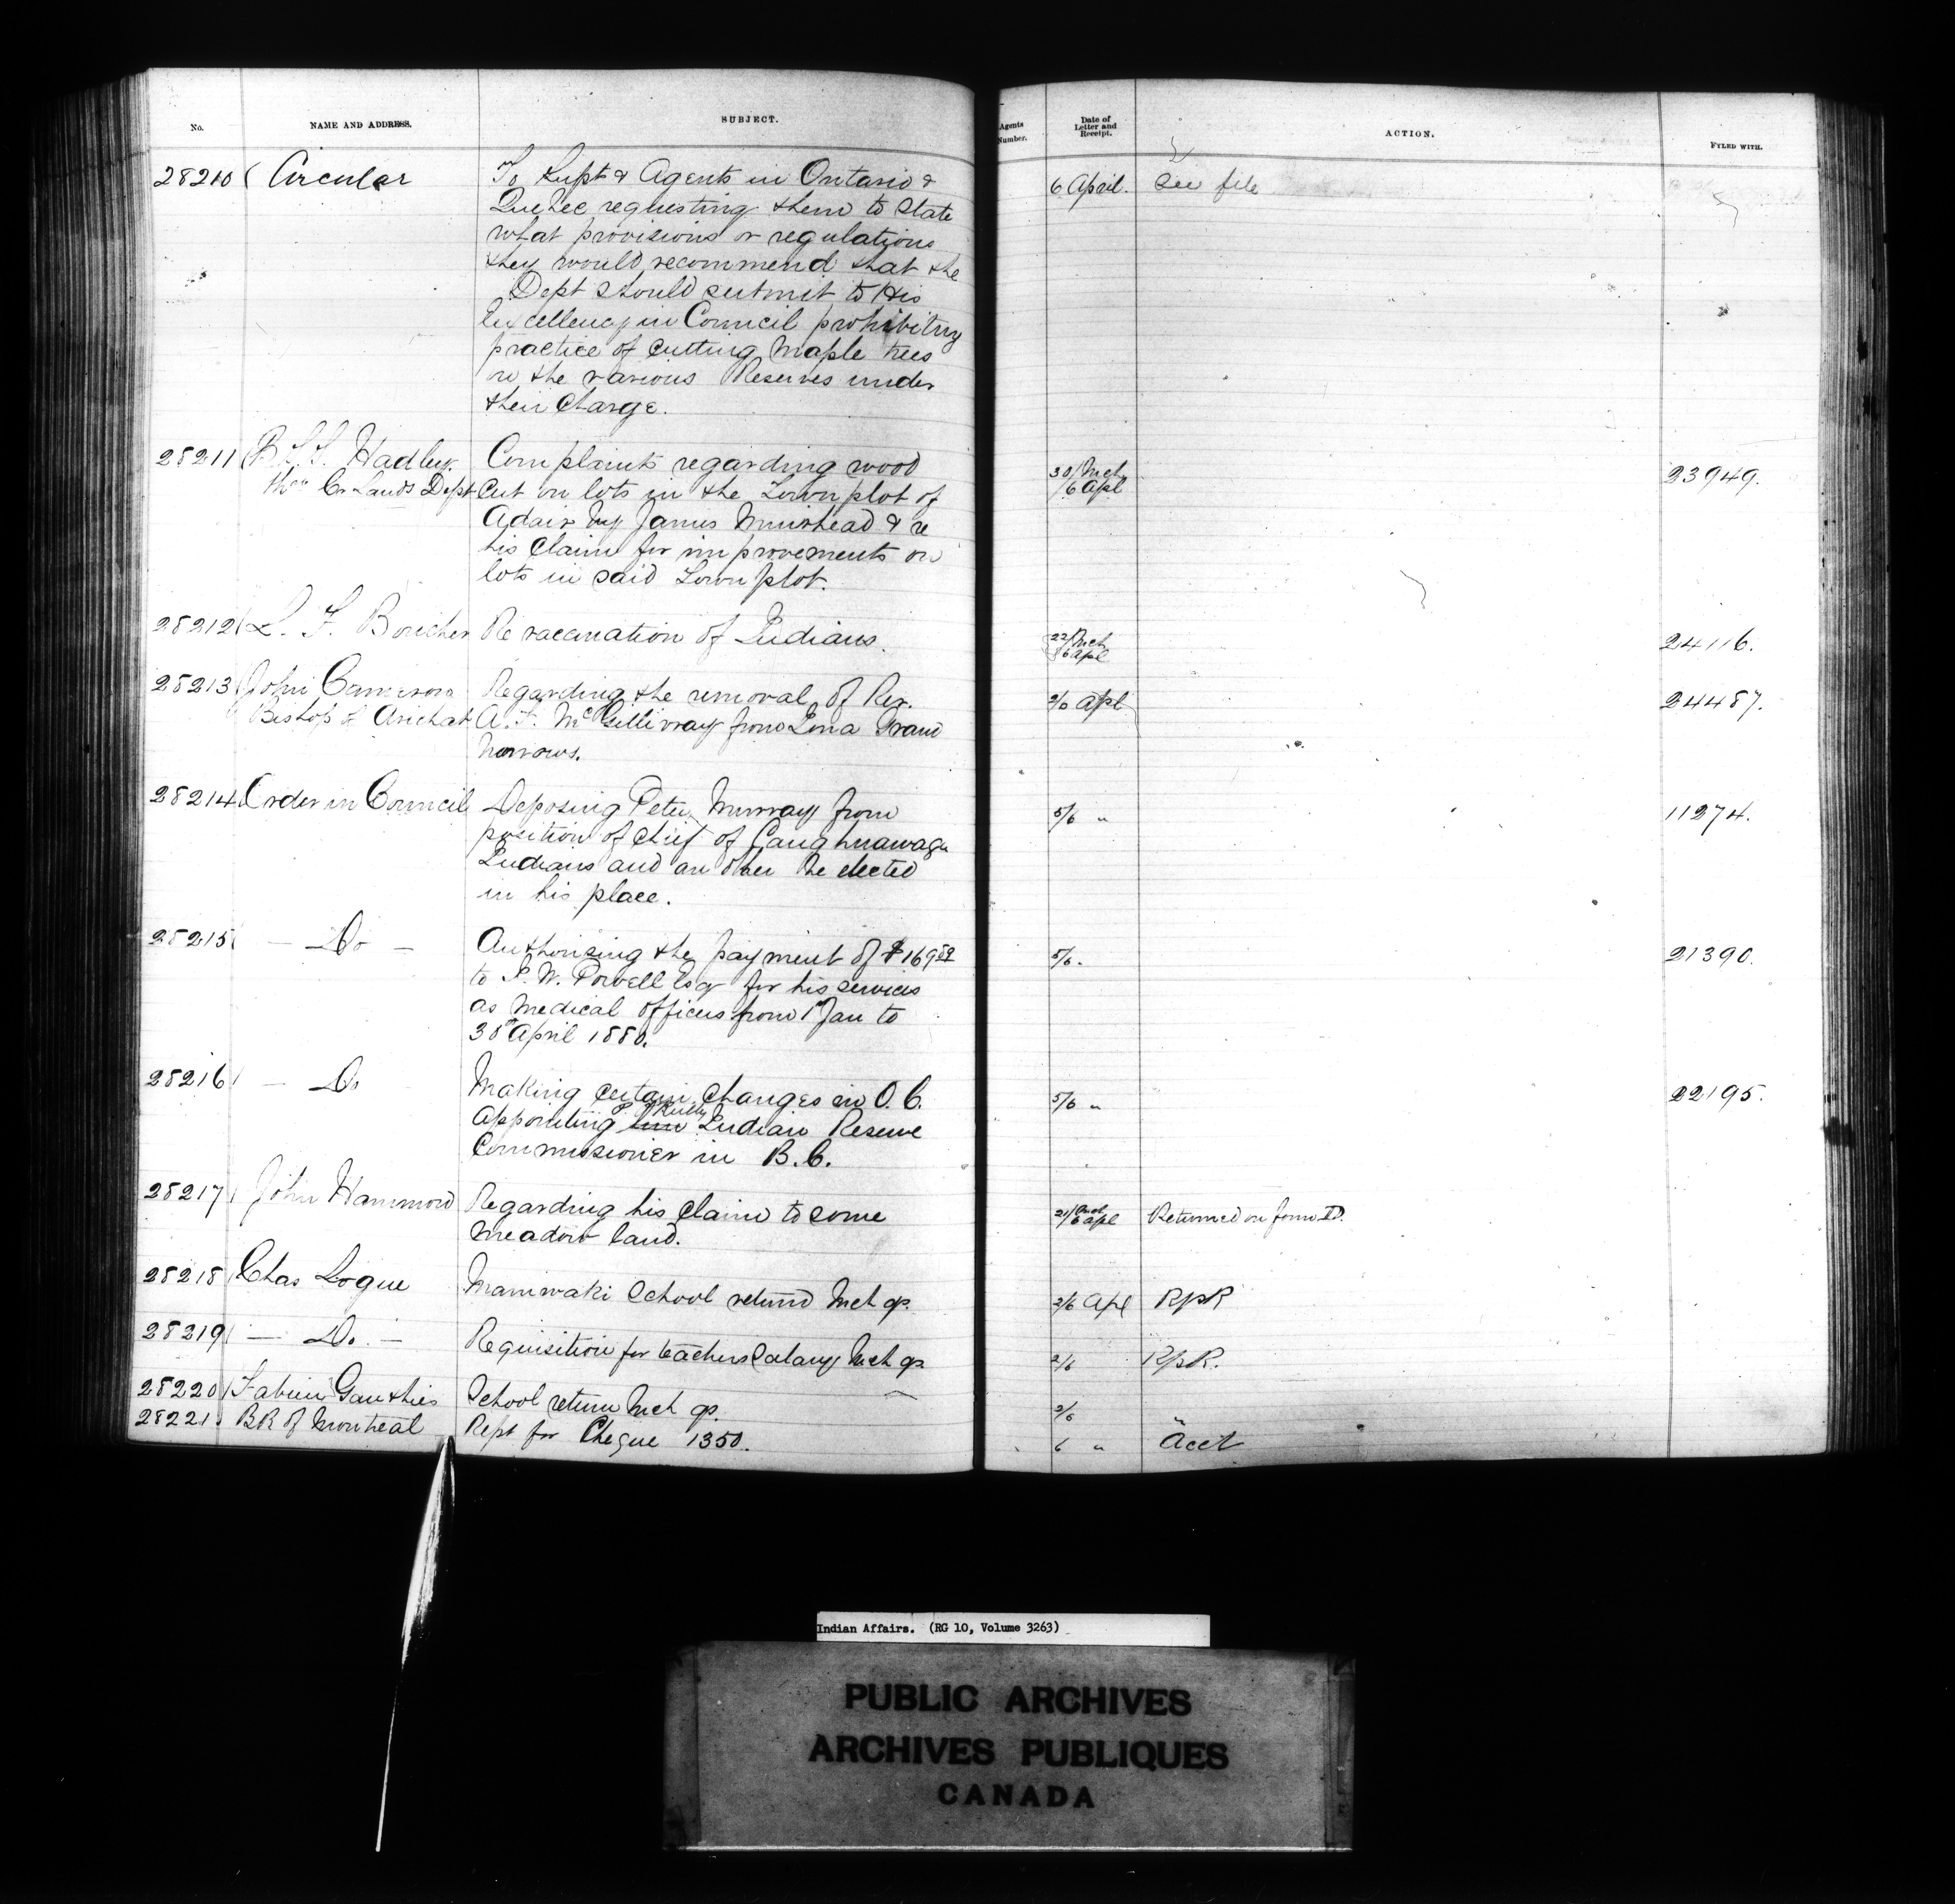 No. NAME AND ADDRESS. SUBJECT. Agents Number. Date of Letter and Receipt. ACTION. FYLED WITH.
28210 Circular To Supts & Agents in Ontario & 6 April. See file
Quebec requesting them to state
what provisions or regulations
they would recommend that the
Dept should submit to His
Excellency in Council prohibiting
practice of cutting Maple trees
on the various Reserves under
their charge.
28211 Hadley. Complaints regarding wood 30/Mch 23949.
Cr Lands Dept cut on lots in the Town plot of /6 Apl
Adair by James Muirhead & re
his claim for improvements on
lots in said Town plot.
28212 L. F. Boucher Re vaccination of Indians. 22/Mch 24116.
/6 apl
28213 John Cameron Regarding the removal of Rev. 2/6 Apl 24487.
Bishop of Arichat A. F. McGillivray from Iona Grand
Narrows.
28214 Order in Council Deposing Peter Murray from 5/6 " 11274.
position of Chief of Caughnawaga
Indians and an other be elected
in his place.
28215 — Do — Authorising the payment of $169 5/6. 21390.
to I. W. Powell Esq for his services
as medical officer from 1st Jan to
30th April 1880.
28216 — Do Making certain changes in O.C. 5/6 " 22195.
P. O'Reilly
appointing Indian Reserve
Commissioner in B.C.
28217 John Hammond Regarding his claim to some /6 apl Returned on form D.
meadow land.
28218 Chas Logue Maniwaki School return Mch qr. 2/6 Apl RpR
28219 — Do. — Requisition for teachers Salary Mch qr 2/6 RpR.
28220 Fabien Gauthier School return Mch qr. 2/6
28221 BK of Montreal Rept for Cheque 1350. 6 " Acct
Indian Affairs. (RG 10, Volume 3263)
PUBLIC ARCHIVES
ARCHIVES PUBLIQUES
CANADA